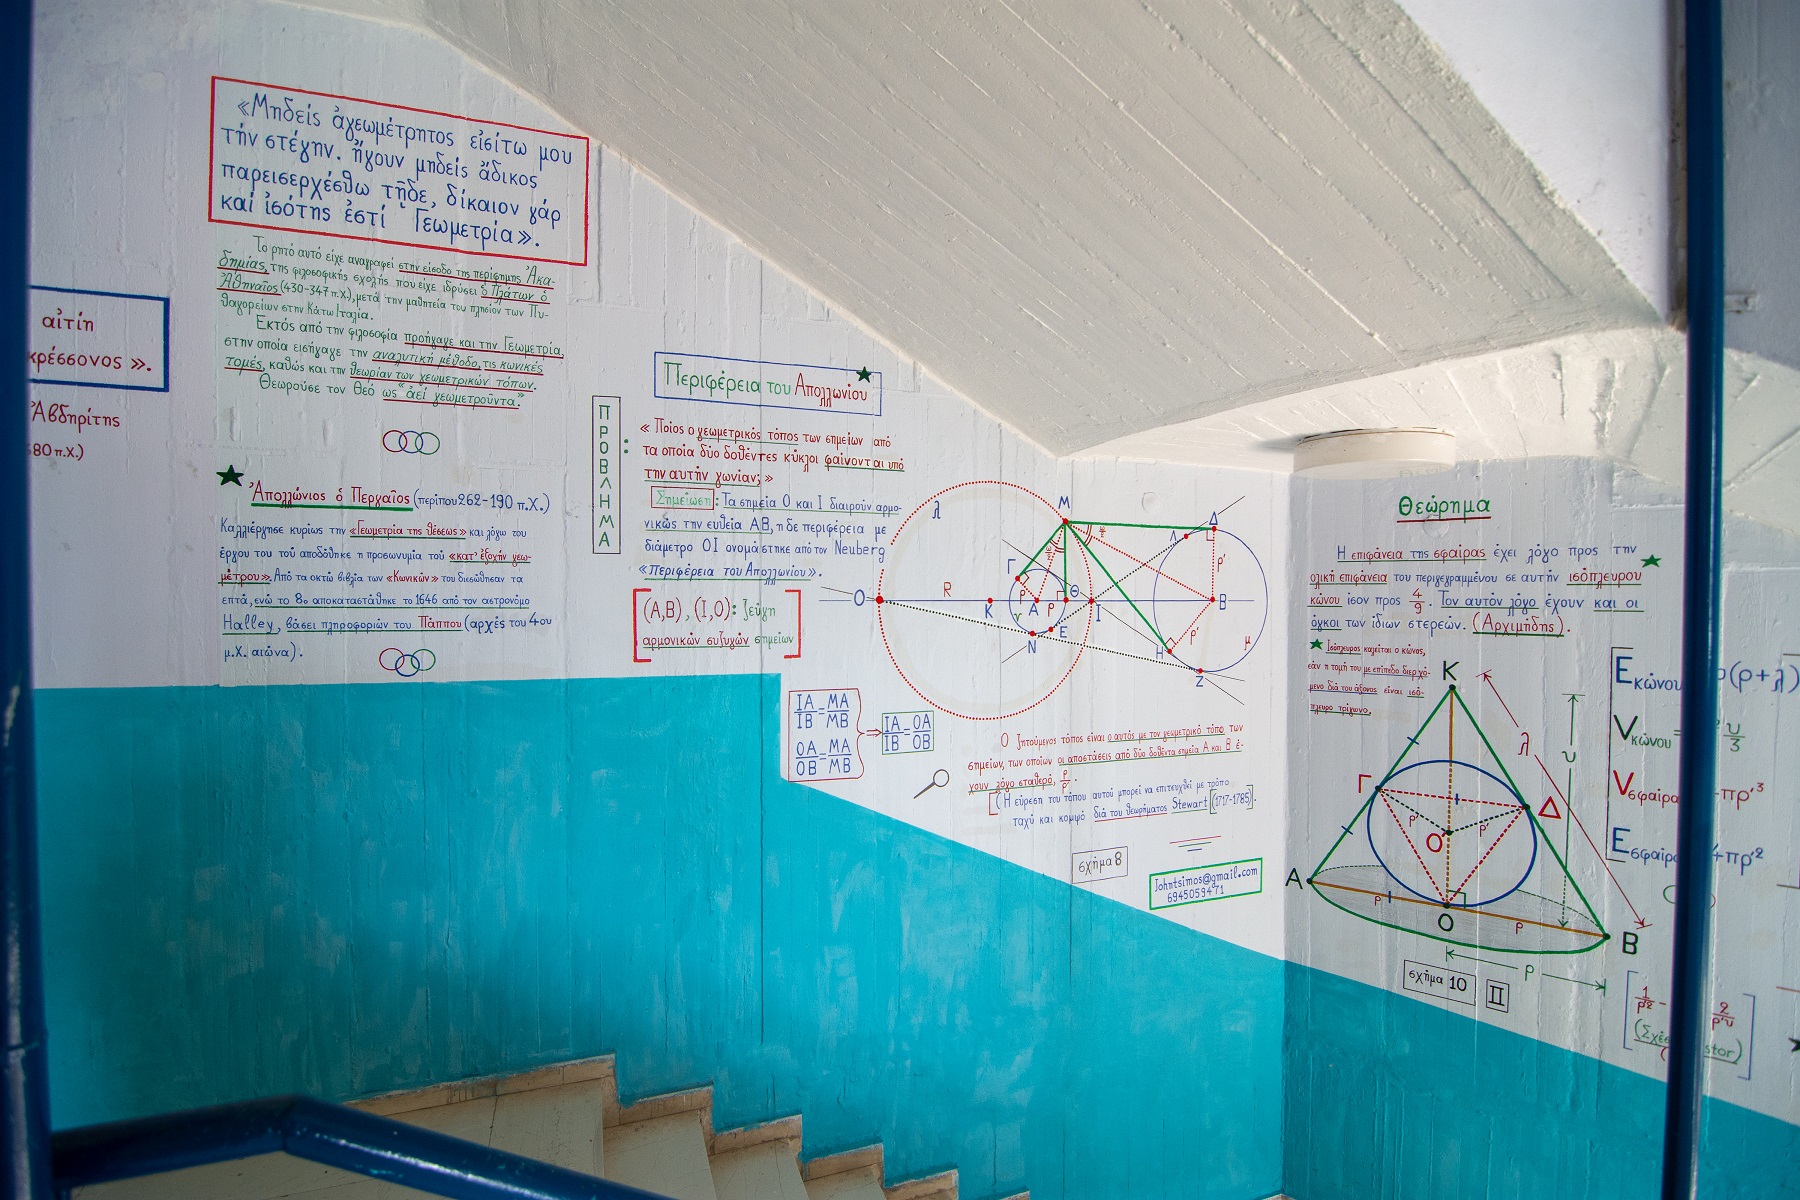 «Μηδείς ἀγεωμέτρητος εἰσίτω μου
τήν στέγην. ἤγουν μηδείς ἄδικος
παρεισερχέσθω τῇδε, δίκαιον γάρ
καί ἰσότης ἐστί Γεωμετρία».
Το ρητό αυτό είχε αναγραφεί στην είσοδο της περίφημης Ἀκα-
δημίας, της φιλοσοφικής σχολής που είχε ιδρύσει ὁ Πλάτων ὁ
Ἀθηναῖος (430-347 π.Χ.), μετά την μαθητεία του πλησίον των Πυ-
θαγορείων στην Κάτω Ιταλία.
Εκτός από την φιλοσοφία προήγαγε και την Γεωμετρία,
στην οποία εισήγαγε την αναλυτική μέθοδο, τις κωνικές
τομές, καθώς και την θεωρίαν των γεωμετρικών τόπων.
Θεωρούσε τον Θεό ως "ἀεί γεωμετροῦντα."
αἰτίη
κρέσσονος ».
Ἀβδηρίτης
80 π.Χ.)
Ἀπολλώνιος ὁ Περγαῖος (περίπου 262-190 π.Χ.)
Καλλιέργησε κυρίως την «Γεωμετρία της θέσεως» και λόγω του
έργου του τοῦ αποδόθηκε η προσωνυμία τοῦ «κατ' ἐξοχήν γεω-
μέτρου». Από τα οκτώ βιβλία των «Κωνικών» του διεσώθησαν τα
επτά, ενώ το 8ο αποκαταστάθηκε το 1646 από τον αστρονόμο
Halley, βάσει πληροφοριών του Πάππου (αρχές του 4ου
μ.Χ. αιώνα).
Περιφέρεια του Απολλωνίου
ΠΡΟΒΛΗΜΑ:
« Ποίος ο γεωμετρικός τόπος των σημείων από
τα οποία δύο δοθέντες κύκλοι φαίνονται υπό
την αυτήν γωνίαν; »
Σημείωση: Τα σημεία Ο και Ι διαιρούν αρμο-
νικώς την ευθεία ΑΒ, η δε περιφέρεια με
διάμετρο ΟΙ ονομάστηκε από τον Neuberg
«Περιφέρεια του Απολλωνίου».
(Α,Β) , (Ι,Ο): ζεύγη
αρμονικών συζυγών σημείων
IA/IB = MA/MB
OA/OB = MA/MB
⇒ IA/IB = OA/OB
λ
Μ
Δ
Λ
Γ
ρ'
Ο
R
Κ
Α
ρ
Θ
Ι
Β
γ
Ε
Ν
Η
ρ'
μ
Ζ
Ο ζητούμενος τόπος είναι ο αυτός με τον γεωμετρικό τόπο των
σημείων, των οποίων οι αποστάσεις από δύο δοθέντα σημεία Α και Β έ-
χουν λόγο σταθερό, ρ/ρ'.
(Η εύρεση του τόπου αυτού μπορεί να επιτευχθεί με τρόπο
ταχύ και κομψό διά του θεωρήματος Stewart (1717-1785).
σχήμα 8
Johntsimos@gmail.com
6945059471
Θεώρημα
Η επιφάνεια της σφαίρας έχει λόγο προς την
ολική επιφάνεια του περιγεγραμμένου σε αυτήν ισόπλευρου
κώνου ίσον προς 4/9. Τον αυτόν λόγο έχουν και οι
όγκοι των ίδιων στερεών. (Αρχιμήδης).
Ισόπλευρος καλείται ο κώνος,
εάν η τομή του με επίπεδο διερχό-
μενο διά του άξονος είναι ισό-
πλευρο τρίγωνο.
Κ
λ
υ
Γ
Δ
ρ'
ρ'
Ο'
Α
ρ
Ο
ρ
Β
ρ
σχήμα 10
II
Εκώνου ρ(ρ+λ)
Vκώνου = υ/3
Vσφαίρα πρ'³
Εσφαίρα 4πρ'²
1/ρ'² - 2/ρ'υ
(Σχέσ stor)